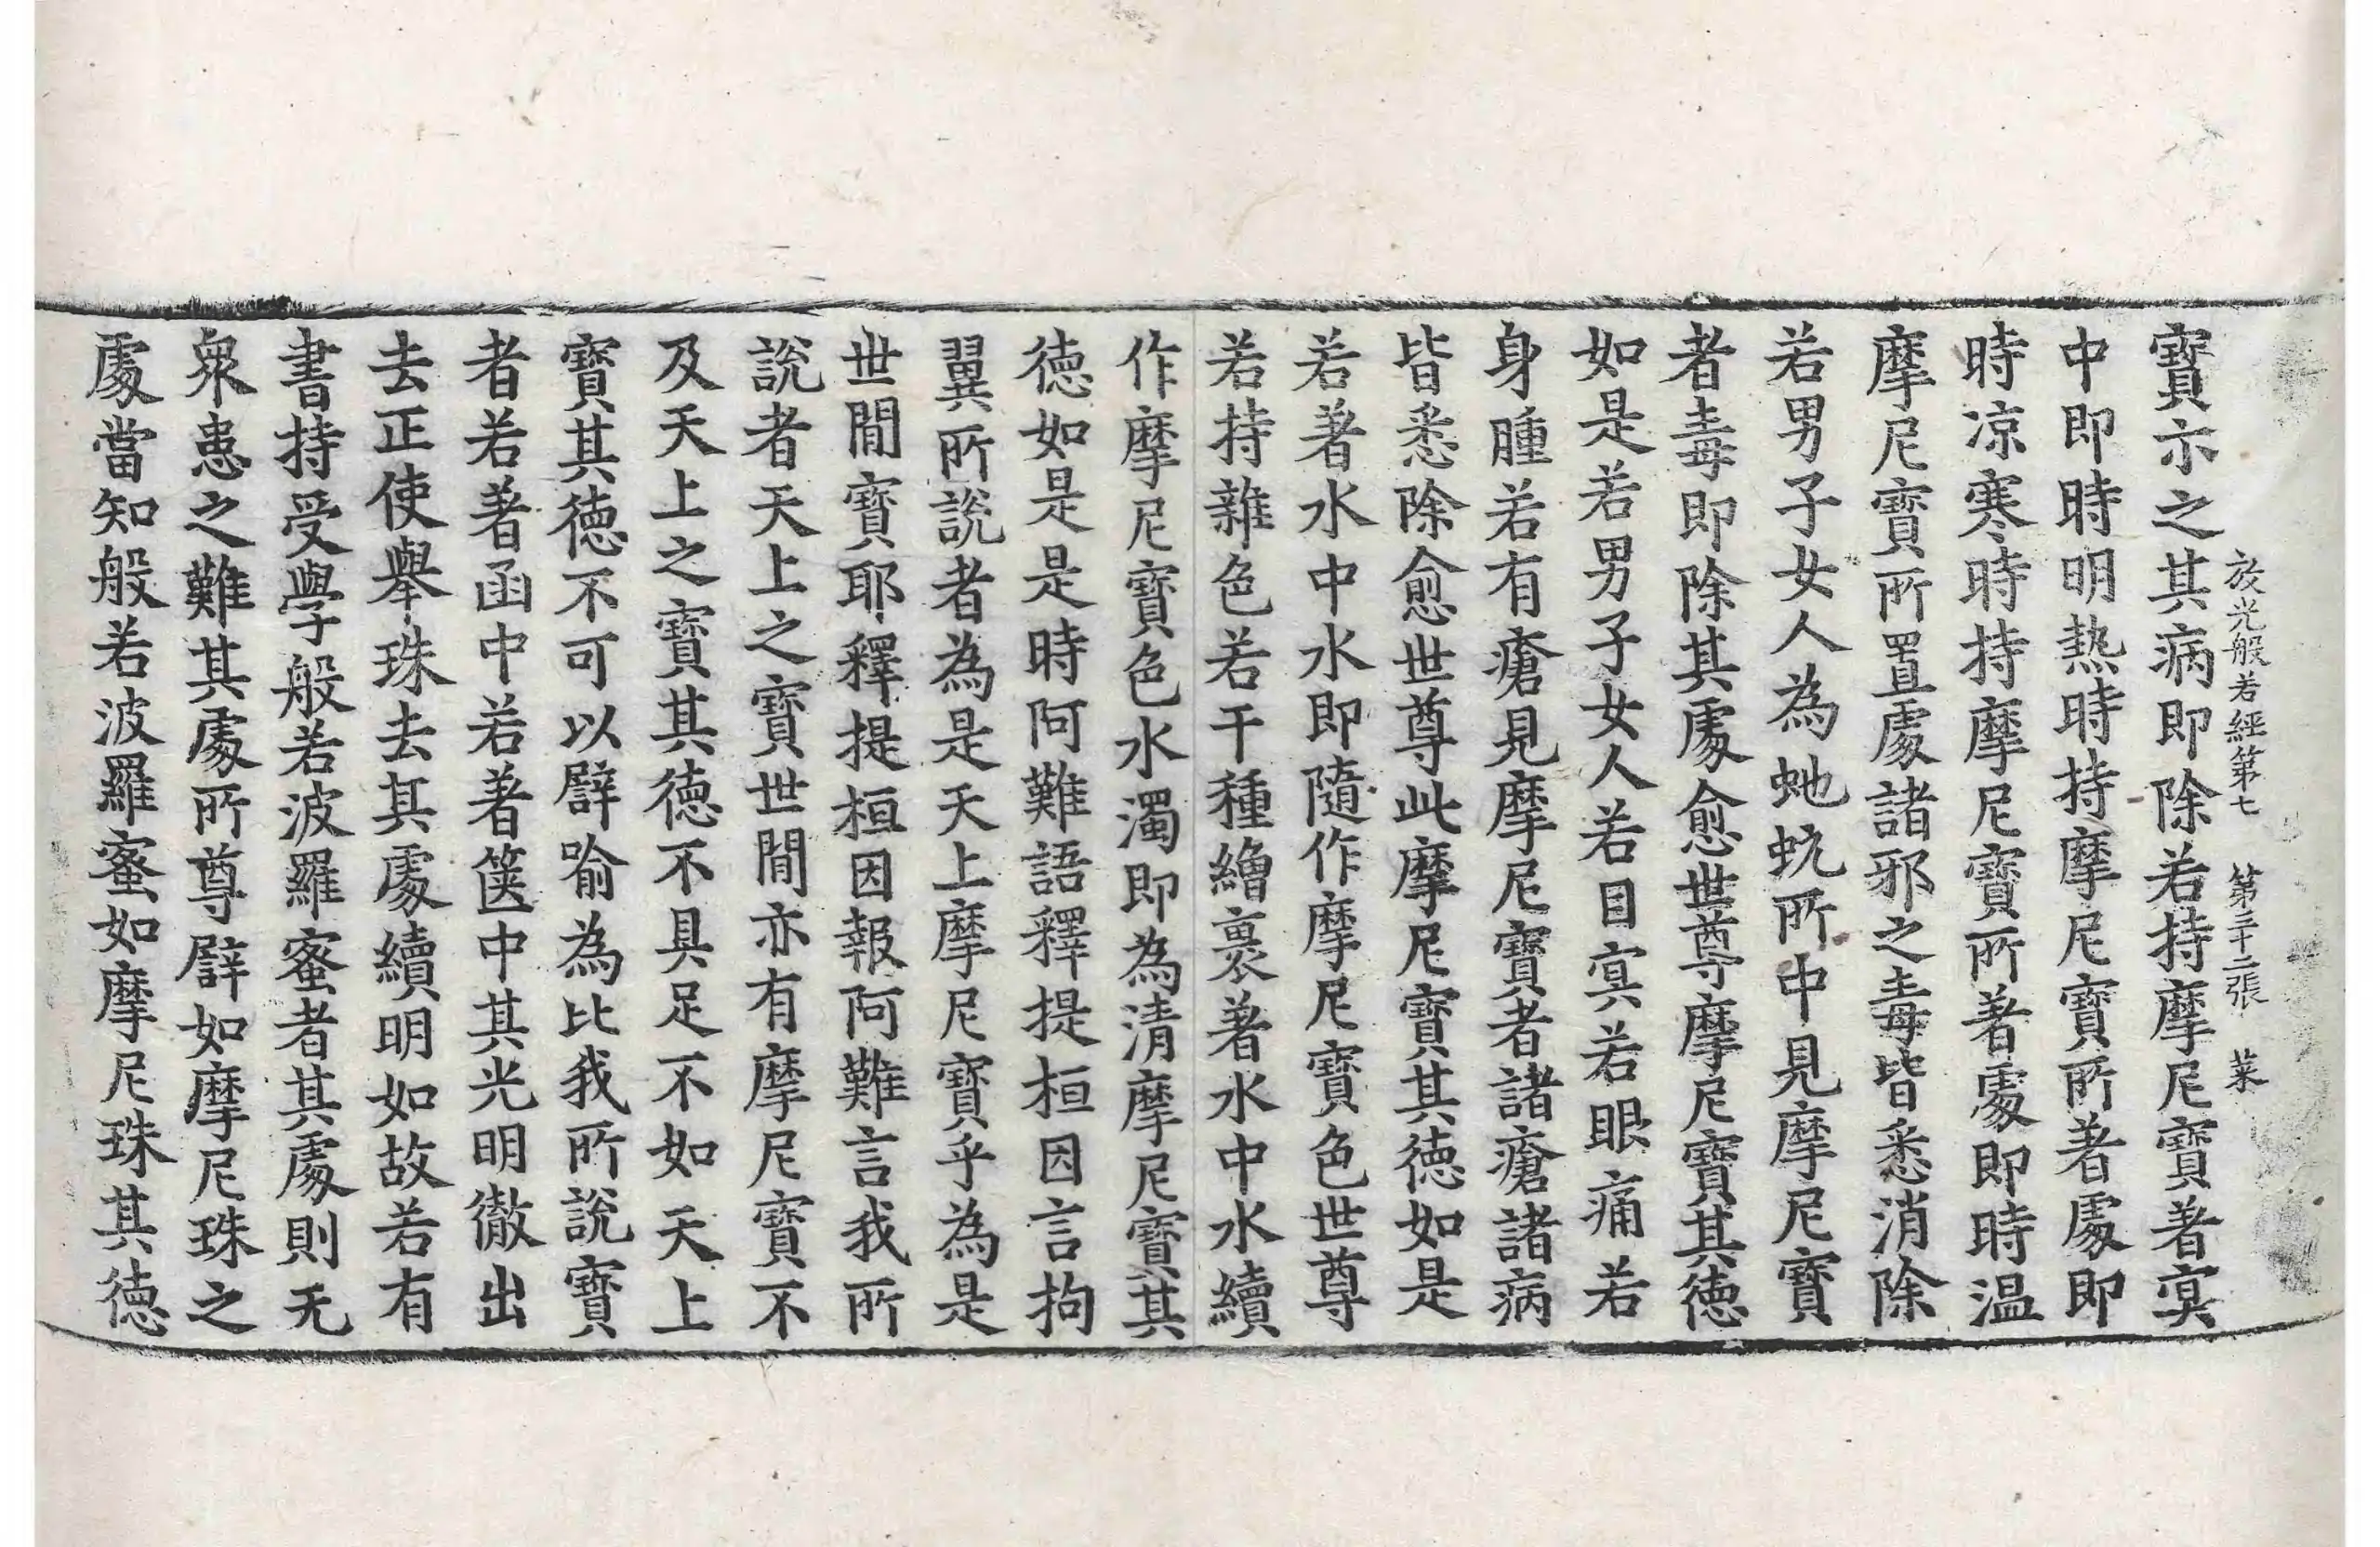 放光般若經第七 第三十二張 菜
寶示之其病即除若持摩尼寶著㝠
中即時明熱時持摩尼寶所著處即
時凉寒時持摩尼寶所著處即時温
摩尼寶所置處諸邪之毒皆悉消除
若男子女人為虵蚖所中見摩尼寶
者毒即除其處愈世尊摩尼寶其德
如是若男子女人若目㝠若眼痛若
身腫若有瘡見摩尼寶者諸瘡諸病
皆悉除愈世尊此摩尼寶其德如是
若著水中水即隨作摩尼寶色世尊
若持雜色若干種繒裹著水中水續
作摩尼寶色水濁即為清摩尼寶其
德如是是時阿難語釋提桓因言拘
翼所說者為是天上摩尼寶乎為是
世閒寶耶釋提桓因報阿難言我所
說者天上之寶世閒亦有摩尼寶不
及天上之寶其德不具足不如天上
寶其德不可以譬喻為比我所說寶
者若著函中若著篋中其光明徹出
去正使舉珠去其處續明如故若有
書持受學般若波羅蜜者其處則无
衆患之難其處所尊譬如摩尼珠之
處當知般若波羅蜜如摩尼珠其德